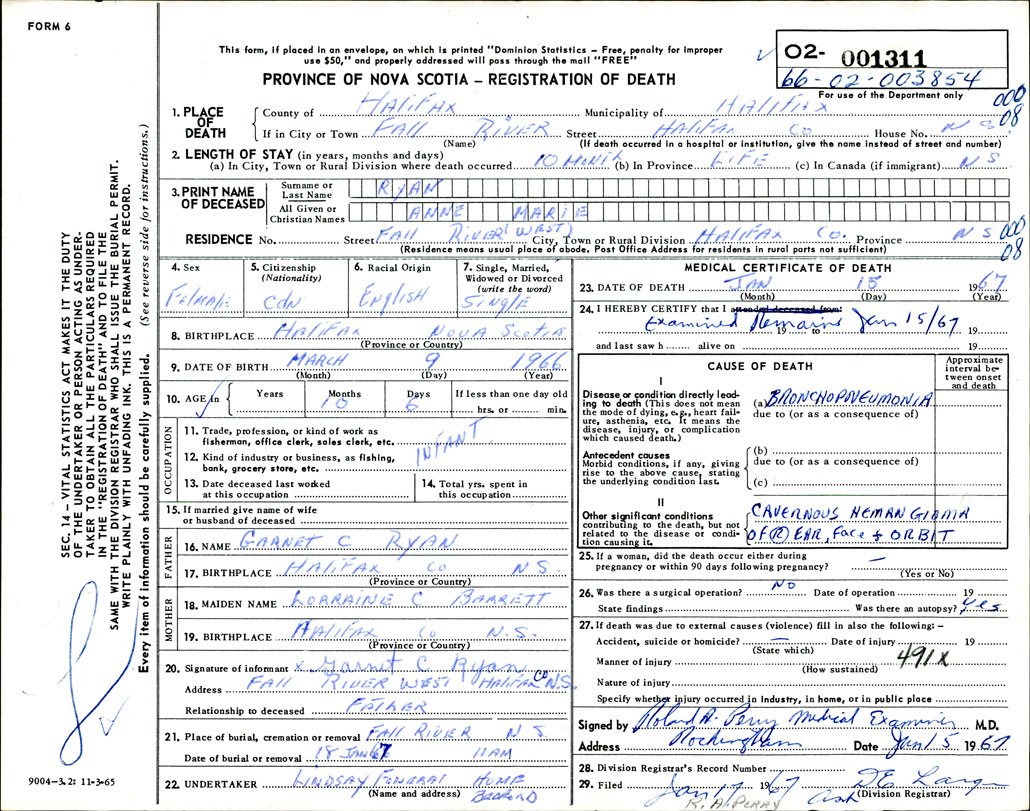 FORM 6
This form, if placed in an envelope, on which is printed "Dominion Statistics – Free, penalty for improper
use $50," and properly addressed will pass through the mail "FREE"
PROVINCE OF NOVA SCOTIA – REGISTRATION OF DEATH
02- 001311
66-02-003854
For use of the Department only
000
08
1. PLACE OF DEATH
County of Halifax Municipality of Halifax
If in City or Town Fall River Street Halifax Co House No. N S
(Name) (If death occurred in a hospital or institution, give the name instead of street and number)
2. LENGTH OF STAY (in years, months and days)
(a) In City, Town or Rural Division where death occurred 10 Month (b) In Province Life (c) In Canada (if immigrant) N S
3. PRINT NAME OF DECEASED
Surname or Last Name RYAN
All Given or Christian Names ANNE MARIE
RESIDENCE No. Street Fall River (West) City, Town or Rural Division Halifax Co. Province N S
000
08
(Residence means usual place of abode. Post Office Address for residents in rural parts not sufficient)
4. Sex
Female
5. Citizenship (Nationality)
Cdn
6. Racial Origin
English
7. Single, Married, Widowed or Divorced (write the word)
Single
8. BIRTHPLACE Halifax Nova Scotia
(Province or Country)
9. DATE OF BIRTH MARCH 9 1966
(Month) (Day) (Year)
10. AGE in Years Months Days If less than one day old
10 6 hrs. or min.
OCCUPATION
11. Trade, profession, or kind of work as
fisherman, office clerk, sales clerk, etc.
INFANT
12. Kind of industry or business, as fishing,
bank, grocery store, etc.
13. Date deceased last worked
at this occupation
14. Total yrs. spent in
this occupation
15. If married give name of wife
or husband of deceased
FATHER
16. NAME Garnet C Ryan
17. BIRTHPLACE Halifax Co N S.
(Province or Country)
MOTHER
18. MAIDEN NAME Lorraine C Barrett
19. BIRTHPLACE Halifax Co N.S.
(Province or Country)
20. Signature of informant x Garnet C Ryan
Address Fall River West Halifax Co N.S.
Relationship to deceased Father
21. Place of burial, cremation or removal Fall River N S
Date of burial or removal 18 Jan 67 11 AM
22. UNDERTAKER Lindsay Funeral Home
(Name and address) Bedford
MEDICAL CERTIFICATE OF DEATH
23. DATE OF DEATH Jan 15 1967
(Month) (Day) (Year)
24. I HEREBY CERTIFY that I attended deceased from:
Examined Remains Jan 15/67 19
19 to
and last saw h alive on 19
CAUSE OF DEATH
Approximate interval between onset and death
I
Disease or condition directly leading
to death (This does not mean
the mode of dying, e.g., heart failure,
asthenia, etc. It means the
disease, injury, or complication
which caused death.)
(a) BRONCHOPNEUMONIA
due to (or as a consequence of)
Antecedent causes
Morbid conditions, if any, giving
rise to the above cause, stating
the underlying condition last.
(b)
due to (or as a consequence of)
(c)
II
Other significant conditions
contributing to the death, but not
related to the disease or condition
causing it.
CAVERNOUS HEMANGIOMA
OF (R) EAR, Face + ORBIT
25. If a woman, did the death occur either during
pregnancy or within 90 days following pregnancy? –
(Yes or No)
26. Was there a surgical operation? NO Date of operation 19
State findings Was there an autopsy? Yes
27. If death was due to external causes (violence) fill in also the following: –
Accident, suicide or homicide? – Date of injury 19
(State which)
Manner of injury 491X
(How sustained)
Nature of injury
Specify whether injury occurred in Industry, in home, or in public place
Signed by Roland A. Perry Medical Examiner M.D.
Address Rockingham Date Jan 15 1967
28. Division Registrar's Record Number
29. Filed Jan 17 1967 D.E. (Division Registrar)
R. A. PERRY
SEC. 14 – VITAL STATISTICS ACT MAKES IT THE DUTY
OF THE UNDERTAKER OR PERSON ACTING AS UNDER-
TAKER TO OBTAIN ALL THE PARTICULARS REQUIRED
IN THE "REGISTRATION OF DEATH" AND TO FILE THE
SAME WITH THE DIVISION REGISTRAR WHO SHALL ISSUE THE BURIAL PERMIT.
WRITE PLAINLY WITH UNFADING INK. THIS IS A PERMANENT RECORD.
Every item of information should be carefully supplied. (See reverse side for instructions.)
9004-3.2: 11-3-65